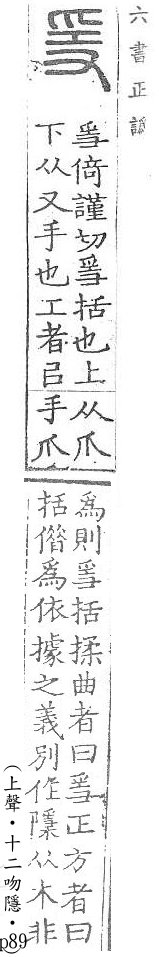 六書正譌
𤔌
𤔌倚謹切𤔌括也上从爪
下从又手也工者㠯手爪
為則𤔌括揉曲者曰𤔌正方者曰
括借為依據之義別作檃从木非
（上聲・十二吻隱・
p89